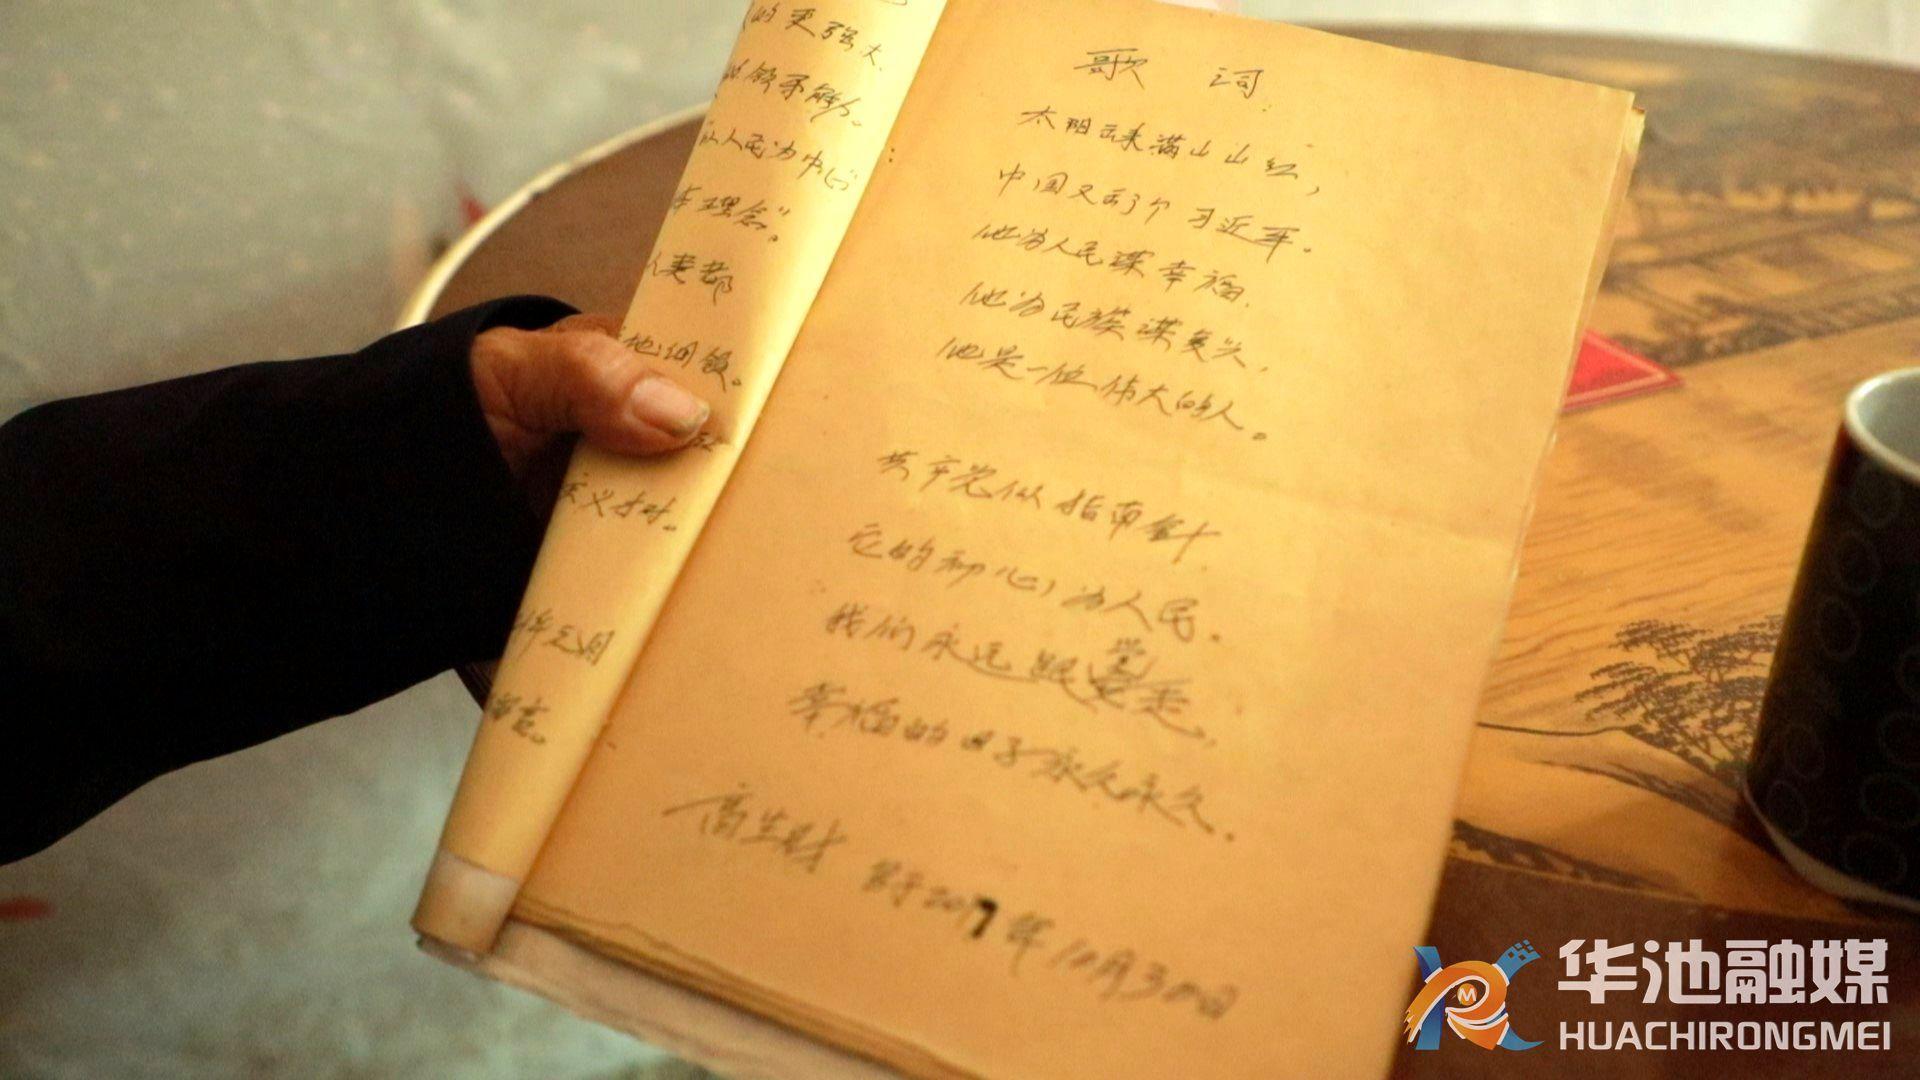 的更强大.
领导能力。
以人民为中心
本理念”。
人妻都
他们领。
主义才对。
年元月
留言。
歌 词:
太阳出来满山山红,
中国又出了个习近平。
他为人民谋幸福.
他为民族谋复兴,
他是一位伟大的人。
共产党似指南针.
它的初心为人民.
我们永远跟党走,
幸福的日子永久永久.
高生财 写于2017年10月30日
华池融媒
HUACHIRONGMEI